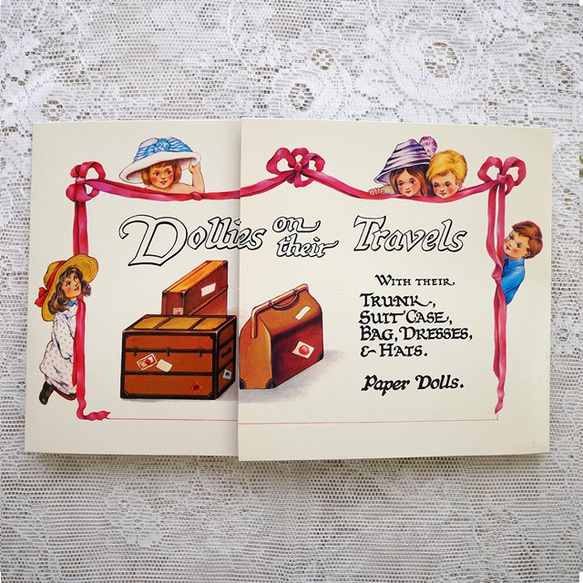 Dollies on their Travels
With their
Trunk,
Suit Case,
Bag, Dresses,
& Hats.
Paper Dolls.